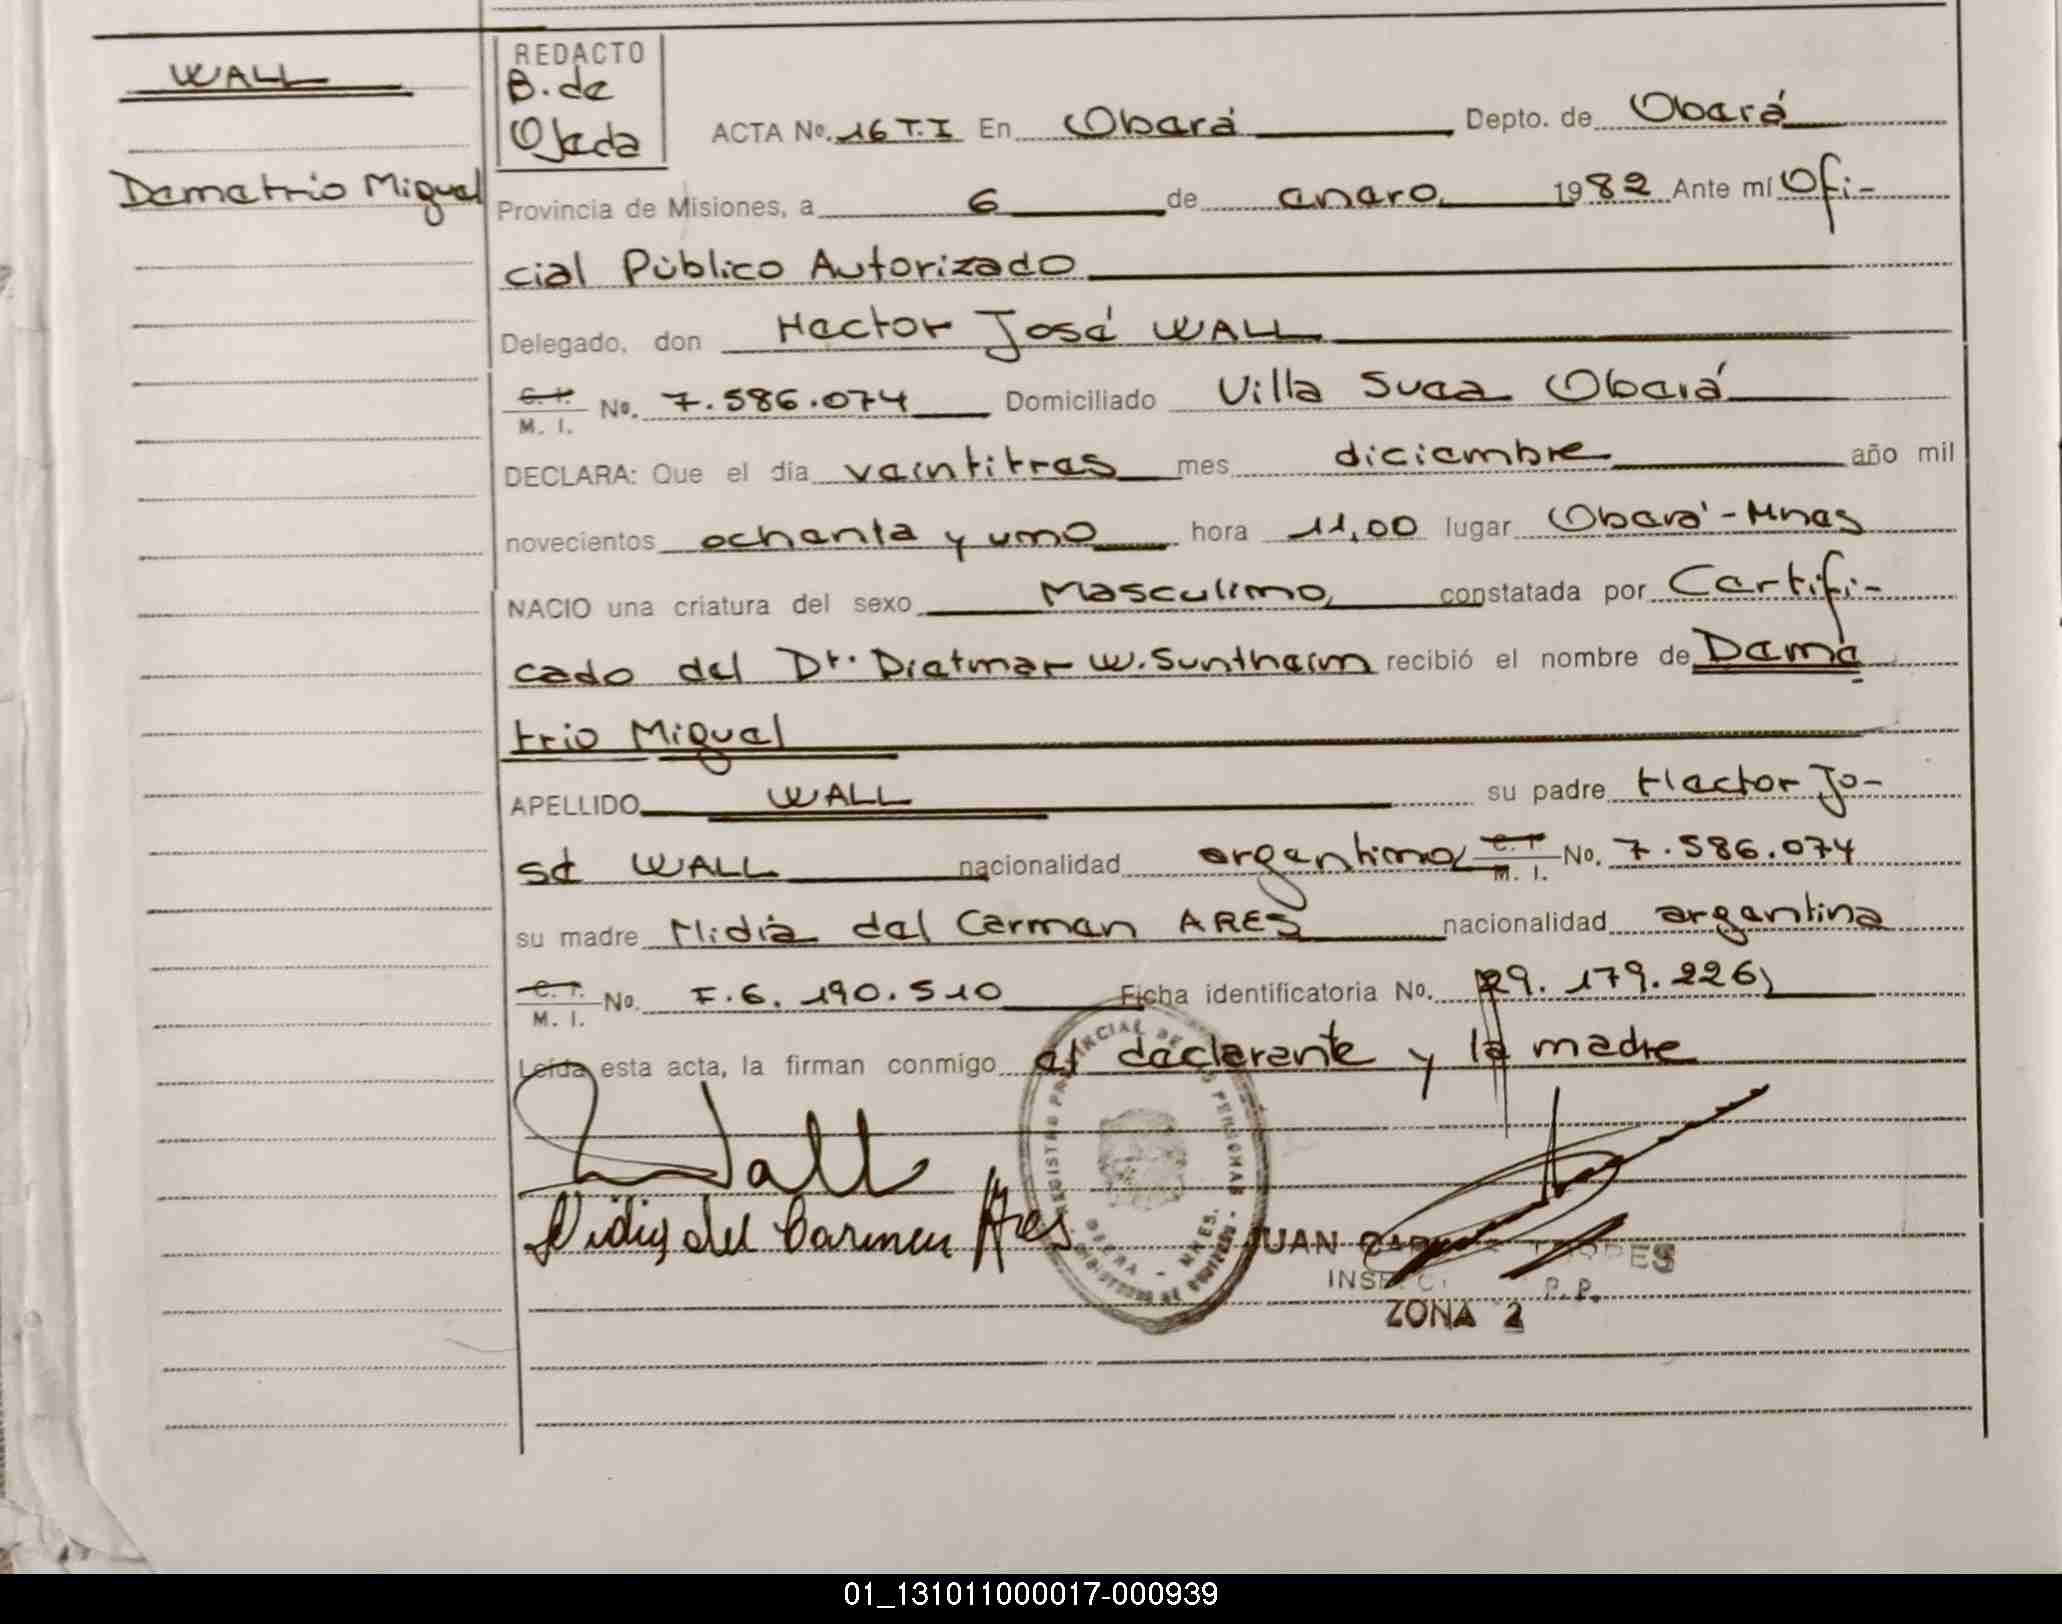 WALL
Demetrio Miguel
REDACTO
B. de
Ojeda
ACTA No. 16 T.I En Oberá Depto. de Oberá
Provincia de Misiones, a 6 de enero, 1982 Ante mí Ofi-
cial Público Autorizado
Delegado, don Hector José WALL
C. I.
M. I. No. 7.586.074 Domiciliado Villa Suea Oberá
DECLARA: Que el día veintitres mes diciembre año mil
novecientos ochenta y uno hora 11,00 lugar Oberá - Mnes
NACIO una criatura del sexo Masculino, constatada por Certifi-
cado del Dr. Dietmar W. Suntheim recibió el nombre de Deme
trio Miguel
APELLIDO WALL su padre Hector Jo-
sé WALL nacionalidad argentino C. I.
M. I. No. 7.586.074
su madre Nidia del Carmen ARES nacionalidad argentina
C. I.
M. I. No. F.6.190.510 Ficha identificatoria No. 29.179.226,
Leída esta acta, la firman conmigo el declarante y la madre
Wall
Nidia del Carmen Ares
REGISTRO PROVINCIAL DE PERSONAS
OBERA - MNES.
JUAN CARLOS TORRES
P.P.
ZONA 2
01_131011000017-000939